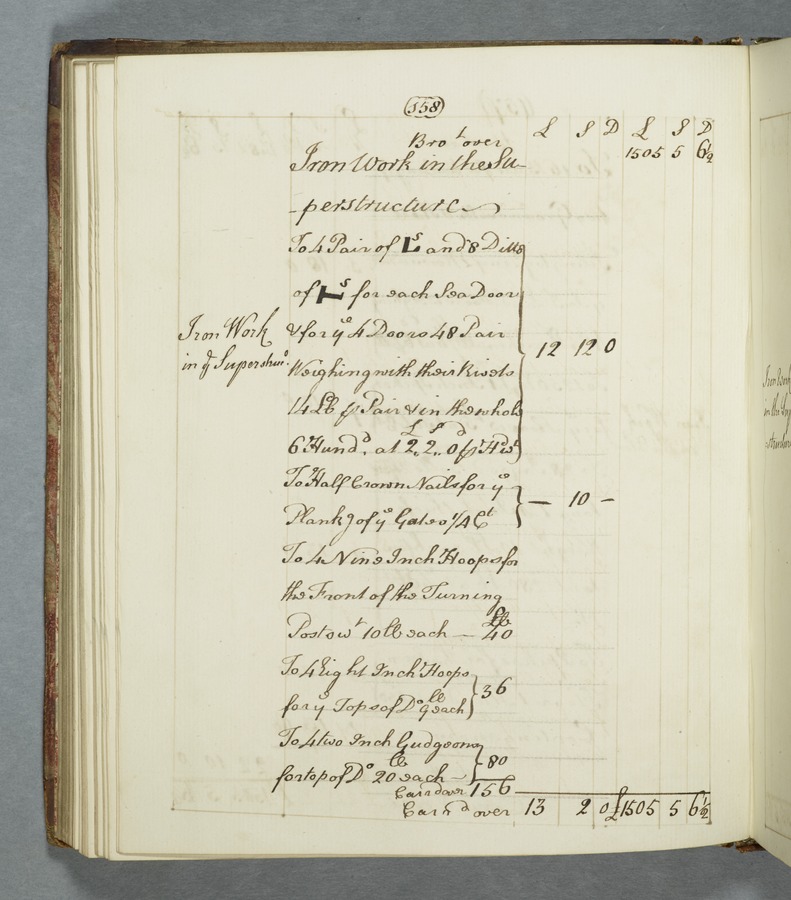 158
£ S D £ S D
Bro.t over 1505 5 6½
Iron Work in the Su-
-perstructure
To 4 Pair of Ls and 8 Ditto
of Ts for each Sea Door
& for ye 4 Doors 48 Pair
Iron Work
in ye Superstruc.
Weighing with their Rivets
14 lb p Pair & in the whole
6 Hund.d, at £2,, S2,, 0d p Hd.wt 12 12 0
To Half Crown Nails for ye
Plank.g of ye Gates ¼ Ct — 10 —
To 4 Nine Inch Hoops for
the Front of the Turning
Posts wt 10 lb each — lb 40
To 4 Eight Inch Hoops
for ye Tops of Do 9 lb each 36
To 4 two Inch Gudgeons
for top of Do 20 lb each — 80
Carrd over 156
Carrd over 13 2 0 £1505 5 6½